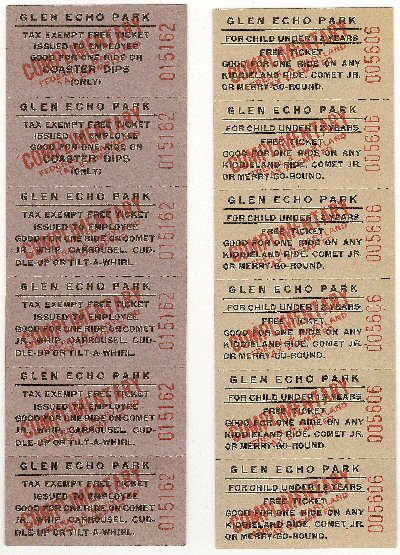 GLEN ECHO PARK
TAX EXEMPT FREE TICKET
ISSUED TO EMPLOYEE
GOOD FOR ONE RIDE ON
COASTER DIPS
(ONLY)
COMPLIMENTARY
015162
GLEN ECHO PARK
TAX EXEMPT FREE TICKET
ISSUED TO EMPLOYEE
GOOD FOR ONE RIDE ON
COASTER DIPS
(ONLY)
COMPLIMENTARY
015162
GLEN ECHO PARK
TAX EXEMPT FREE TICKET
ISSUED TO EMPLOYEE
GOOD FOR ONE RIDE ON COMET
JR., WHIP, CARROUSEL, CUD-
DLE-UP OR TILT-A-WHIRL.
COMPLIMENTARY
015162
GLEN ECHO PARK
TAX EXEMPT FREE TICKET
ISSUED TO EMPLOYEE
GOOD FOR ONE RIDE ON COMET
JR., WHIP, CARROUSEL, CUD-
DLE-UP OR TILT-A-WHIRL.
COMPLIMENTARY
015162
GLEN ECHO PARK
TAX EXEMPT FREE TICKET
ISSUED TO EMPLOYEE
GOOD FOR ONE RIDE ON COMET
JR., WHIP, CARROUSEL, CUD-
DLE-UP OR TILT-A-WHIRL.
COMPLIMENTARY
015162
GLEN ECHO PARK
TAX EXEMPT FREE TICKET
ISSUED TO EMPLOYEE
GOOD FOR ONE RIDE ON COMET
JR., WHIP, CARROUSEL, CUD-
DLE-UP OR TILT-A-WHIRL.
COMPLIMENTARY
015162
GLEN ECHO PARK
FOR CHILD UNDER 12 YEARS
FREE TICKET
GOOD FOR ONE RIDE ON ANY
KIDDIELAND RIDE, COMET JR.
OR MERRY-GO-ROUND.
COMPLIMENTARY
005606
GLEN ECHO PARK
FOR CHILD UNDER 12 YEARS
FREE TICKET
GOOD FOR ONE RIDE ON ANY
KIDDIELAND RIDE, COMET JR.
OR MERRY-GO-ROUND.
COMPLIMENTARY
005606
GLEN ECHO PARK
FOR CHILD UNDER 12 YEARS
FREE TICKET
GOOD FOR ONE RIDE ON ANY
KIDDIELAND RIDE, COMET JR.
OR MERRY-GO-ROUND.
COMPLIMENTARY
005606
GLEN ECHO PARK
FOR CHILD UNDER 12 YEARS
FREE TICKET
GOOD FOR ONE RIDE ON ANY
KIDDIELAND RIDE, COMET JR.
OR MERRY-GO-ROUND.
COMPLIMENTARY
005606
GLEN ECHO PARK
FOR CHILD UNDER 12 YEARS
FREE TICKET
GOOD FOR ONE RIDE ON ANY
KIDDIELAND RIDE, COMET JR.
OR MERRY-GO-ROUND.
COMPLIMENTARY
005606
GLEN ECHO PARK
FOR CHILD UNDER 12 YEARS
FREE TICKET
GOOD FOR ONE RIDE ON ANY
KIDDIELAND RIDE, COMET JR.
OR MERRY-GO-ROUND.
COMPLIMENTARY
005606